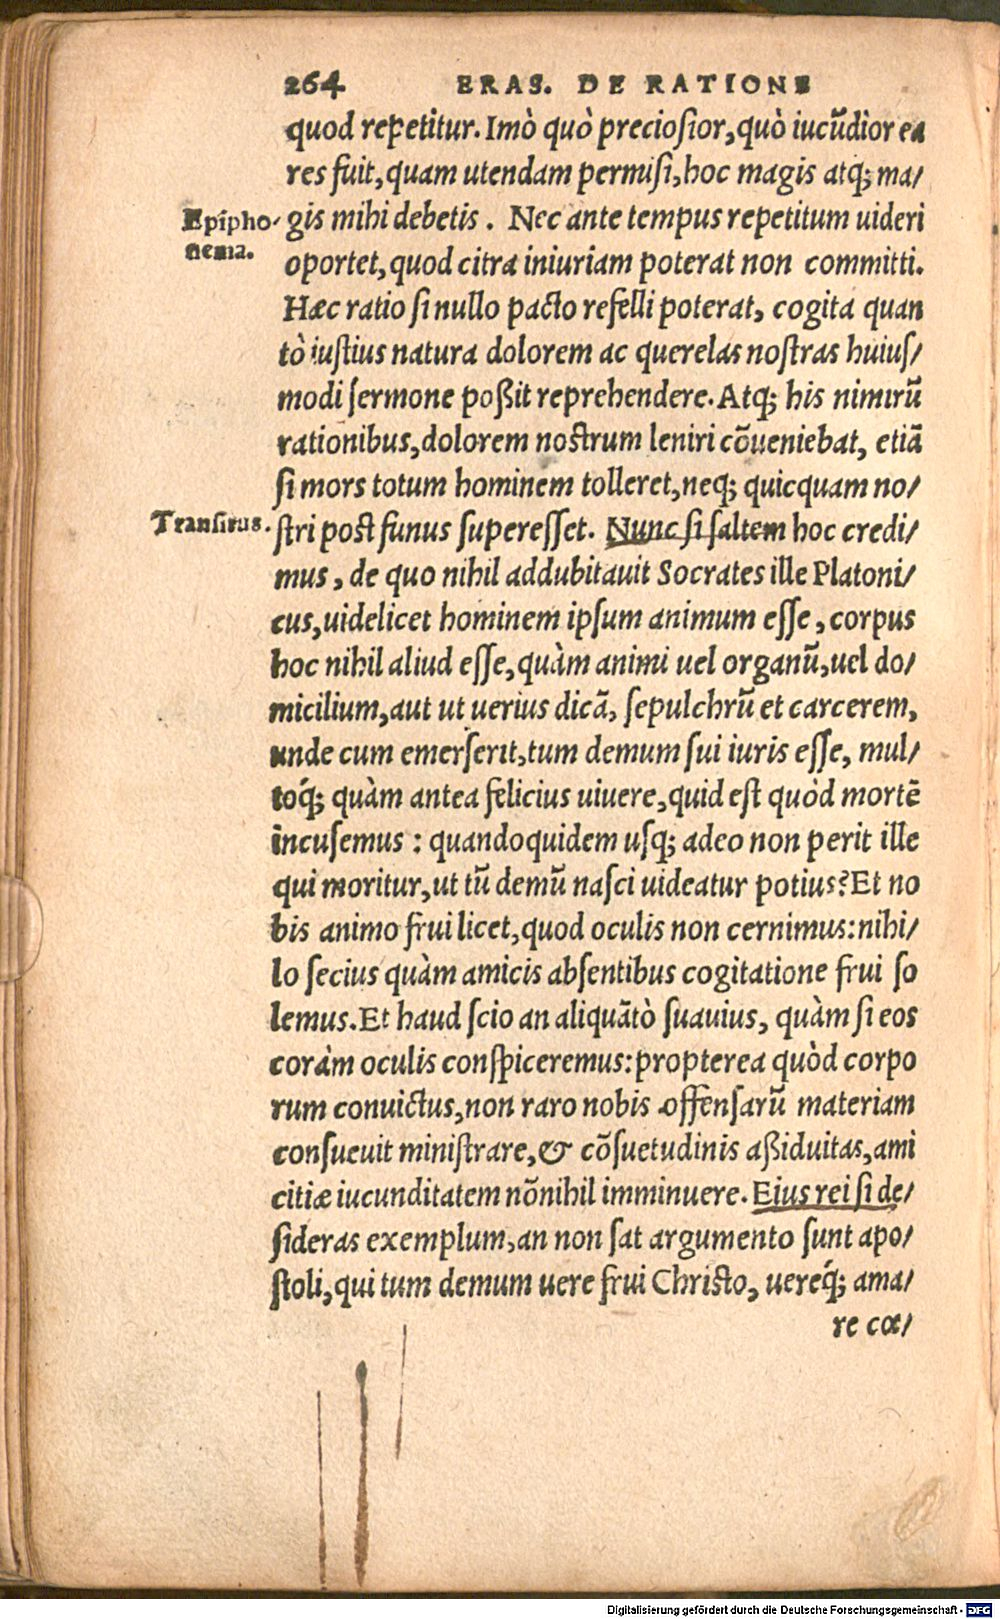 264 ERAS. DE RATIONE
quod repetitur. Imò quò preciosior, quò iucũdior ea
res fuit, quam utendam permisi, hoc magis atq; ma/
Epipho-
nema.
gis mihi debetis. Nec ante tempus repetitum uideri
oportet, quod citra iniuriam poterat non committi.
Hæc ratio si nullo pacto refelli poterat, cogita quan
tò iustius natura dolorem ac querelas nostras huius/
modi sermone poßit reprehendere. Atq; his nimirũ
rationibus, dolorem nostrum leniri cõueniebat, etiã
si mors totum hominem tolleret, neq; quicquam no/
Transitus.
stri post funus superesset. Nunc si saltem hoc credi/
mus, de quo nihil addubitauit Socrates ille Platoni/
cus, uidelicet hominem ipsum animum esse, corpus
hoc nihil aliud esse, quàm animi uel organũ, uel do/
micilium, aut ut uerius dicã, sepulchrũ et carcerem,
unde cum emerserit, tum demum sui iuris esse, mul/
toq́; quàm antea felicius uiuere, quid est quòd mortẽ
incusemus: quandoquidem usq; adeo non perit ille
qui moritur, ut tũ demũ nasci uideatur potius? Et no
bis animo frui licet, quod oculis non cernimus: nihi/
lo secius quàm amicis absentibus cogitatione frui so
lemus. Et haud scio an aliquãtò suauius, quàm si eos
coràm oculis conspiceremus: propterea quòd corpo
rum conuictus, non raro nobis offensarũ materiam
consueuit ministrare, & cõsuetudinis aßiduitas, ami
citiæ iucunditatem nõnihil imminuere. Eius rei si de/
sideras exemplum, an non sat argumento sunt apo/
stoli, qui tum demum uere frui Christo, uereq́; ama/
re cœ/
Digitalisierung gefördert durch die Deutsche Forschungsgemeinschaft - DFG